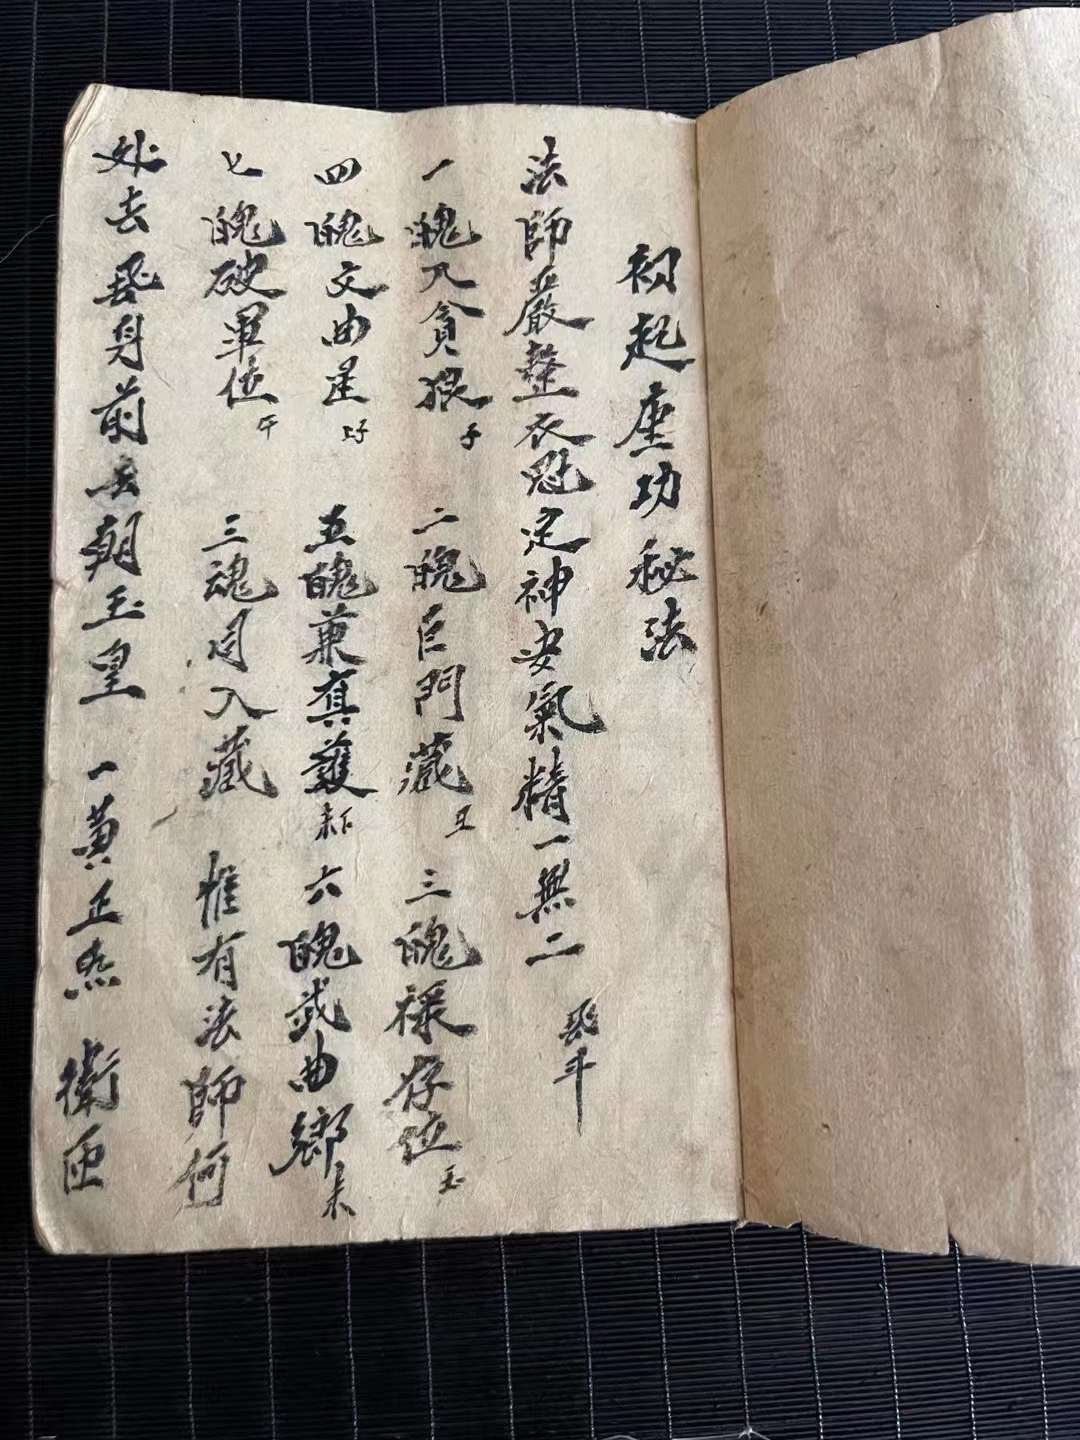 初起座功秘法
法師嚴整衣冠定神安氣精一無二 飛斗
一魄入貪狼子 二魄巨門藏 三魄禄存位
四魄文曲星 五魄兼真護 六魄武曲鄉未
七魄破軍位午 三魂同入藏 惟有法師何
处去 飛身前去朝玉皇 一黃正炁